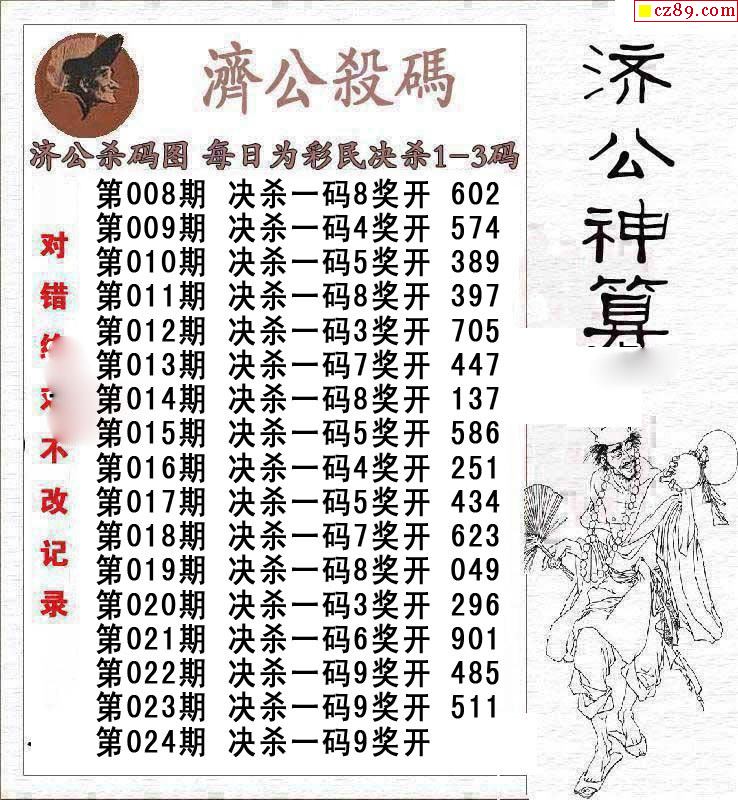 cz89.com
濟公殺碼
济公杀码图 每日为彩民决杀1-3码
第008期 决杀一码8奖开 602
第009期 决杀一码4奖开 574
第010期 决杀一码5奖开 389
第011期 决杀一码8奖开 397
第012期 决杀一码3奖开 705
第013期 决杀一码7奖开 447
第014期 决杀一码8奖开 137
第015期 决杀一码5奖开 586
第016期 决杀一码4奖开 251
第017期 决杀一码5奖开 434
第018期 决杀一码7奖开 623
第019期 决杀一码8奖开 049
第020期 决杀一码3奖开 296
第021期 决杀一码6奖开 901
第022期 决杀一码9奖开 485
第023期 决杀一码9奖开 511
第024期 决杀一码9奖开
对错不改记录
济公神算